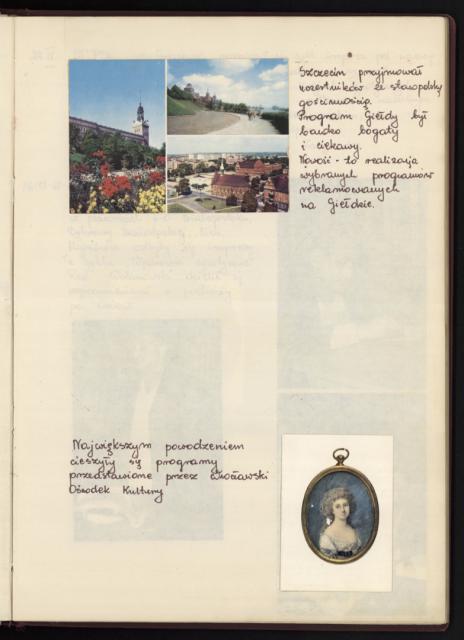 Szczecin przyjmował
uczestników ze staropolską
gościnnością.
Program Giełdy był
bardzo bogaty
i ciekawy.
Nowość - to realizacja
wybranych programów
reklamowanych
na Giełdzie.
Największym powodzeniem
cieszyły się programy
przedstawione przez Włocławski
Ośrodek Kultury